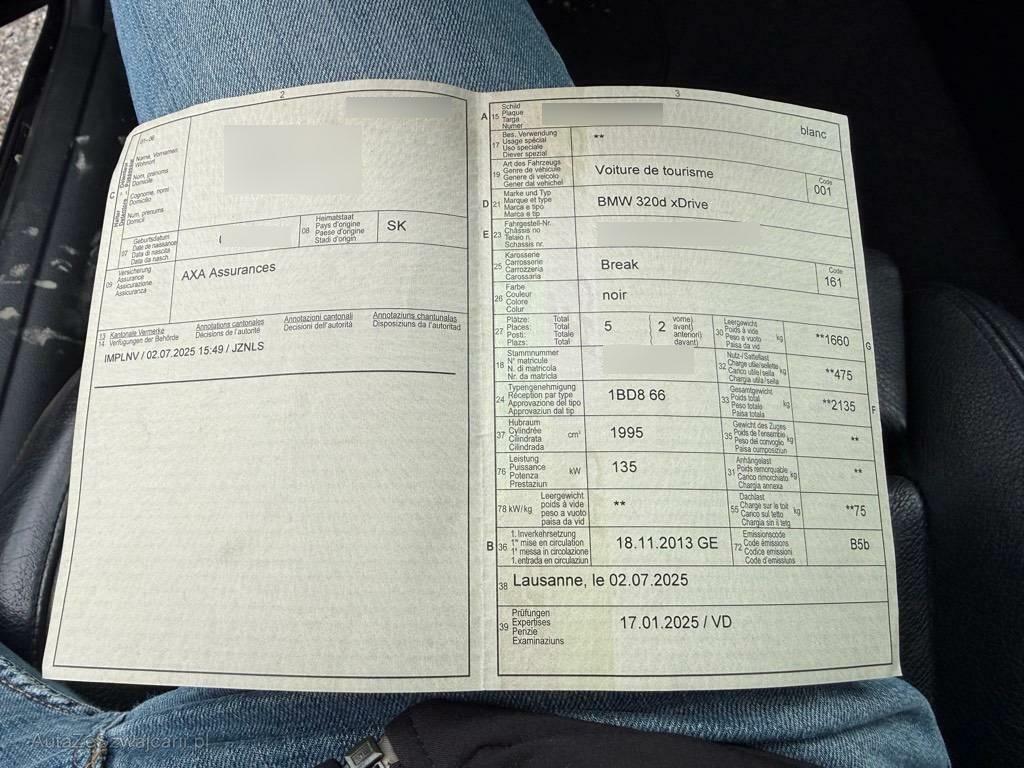 2
C
01-06
Name, Vornamen
Wohnort
Nom, prénoms
Domicile
Cognome, nomi
Domicilio
Num, prenums
Domicil
07
Geburtsdatum
Date de naissance
Data di nascita
Data da nasch.
08
Heimatstaat
Pays d'origine
Paese d'origine
Stadi d'origin
SK
09
Versicherung
Assurance
Assicurazione
Assicuranza
AXA Assurances
13 Kantonale Vermerke
14 Verfügungen der Behörde
Annotations cantonales
Décisions de l'autorité
Annotazioni cantonali
Decisioni dell'autorità
Annotaziuns chantunalas
Disposiziuns da l'autoritad
IMPLNV / 02.07.2025 15:49 / JZNLS
3
A 15
Schild
Plaque
Targa
Numer
blanc
17
Bes. Verwendung
Usage spécial
Uso speciale
Diever spezial
**
19
Art des Fahrzeugs
Genre de véhicule
Genere di veicolo
Gener dal vehichel
Voiture de tourisme
Code
001
D 21
Marke und Typ
Marque et type
Marca e tipo
Marca e tip
BMW 320d xDrive
E 23
Fahrgestell-Nr.
Châssis no
Telaio n.
Schassis nr.
25
Karosserie
Carrosserie
Carrozzeria
Carossaria
Break
Code
161
26
Farbe
Couleur
Colore
Colur
noir
27
Plätze: Total
Places: Total
Posti: Totale
Plazs: Total
5
2
vorne)
avant)
anteriori)
davant)
30
Leergewicht
Poids à vide
Peso a vuoto
Paisa da vid
kg
**1660
G
18
Stammnummer
N° matricule
N. di matricola
Nr. da matricla
32
Nutz-/Sattellast
Charge utile/sellette
Carico utile/sella
Chargia utila/sella
kg
**475
24
Typengenehmigung
Réception par type
Approvazione del tipo
Approvaziun dal tip
1BD8 66
33
Gesamtgewicht
Poids total
Peso totale
Paisa totala
kg
**2135
F
37
Hubraum
Cylindrée
Cilindrata
Cilindrada
cm³
1995
35
Gewicht des Zuges
Poids de l'ensemble
Peso del convoglio
Paisa cumposiziun
kg
**
76
Leistung
Puissance
Potenza
Prestaziun
kW
135
31
Anhängelast
Poids remorquable
Carico rimorchiato
Chargia annexa
kg
**
78 kW/kg
Leergewicht
poids à vide
peso a vuoto
paisa da vid
**
55
Dachlast
Charge sur le toit
Carico sul tetto
Chargia sin il tetg
kg
**75
B 36
1. Inverkehrsetzung
1re mise en circulation
1a messa in circolazione
1. entrada en circulaziun
18.11.2013 GE
72
Emissionscode
Code émissions
Codice emissioni
Code d'emissiuns
B5b
38
Lausanne, le 02.07.2025
39
Prüfungen
Expertises
Perizie
Examinaziuns
17.01.2025 / VD
AutazeSzwajcarii.pl